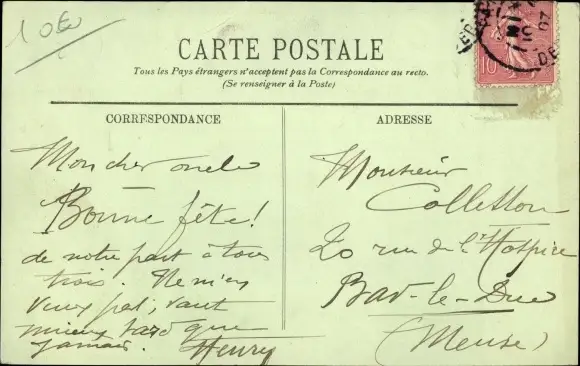 10€
CARTE POSTALE
Tous les Pays étrangers n'acceptent pas la Correspondance au recto.
(Se renseigner à la Poste)
CORRESPONDANCE
Mon cher oncle
Bonne fête!
de notre part à tous
trois. Ne m'en
veux pas, vaut
mieux tard que
jamais. Henry
ADRESSE
Monsieur
20 rue de l'Hospice
Bar-le-Duc
(Meuse)
10